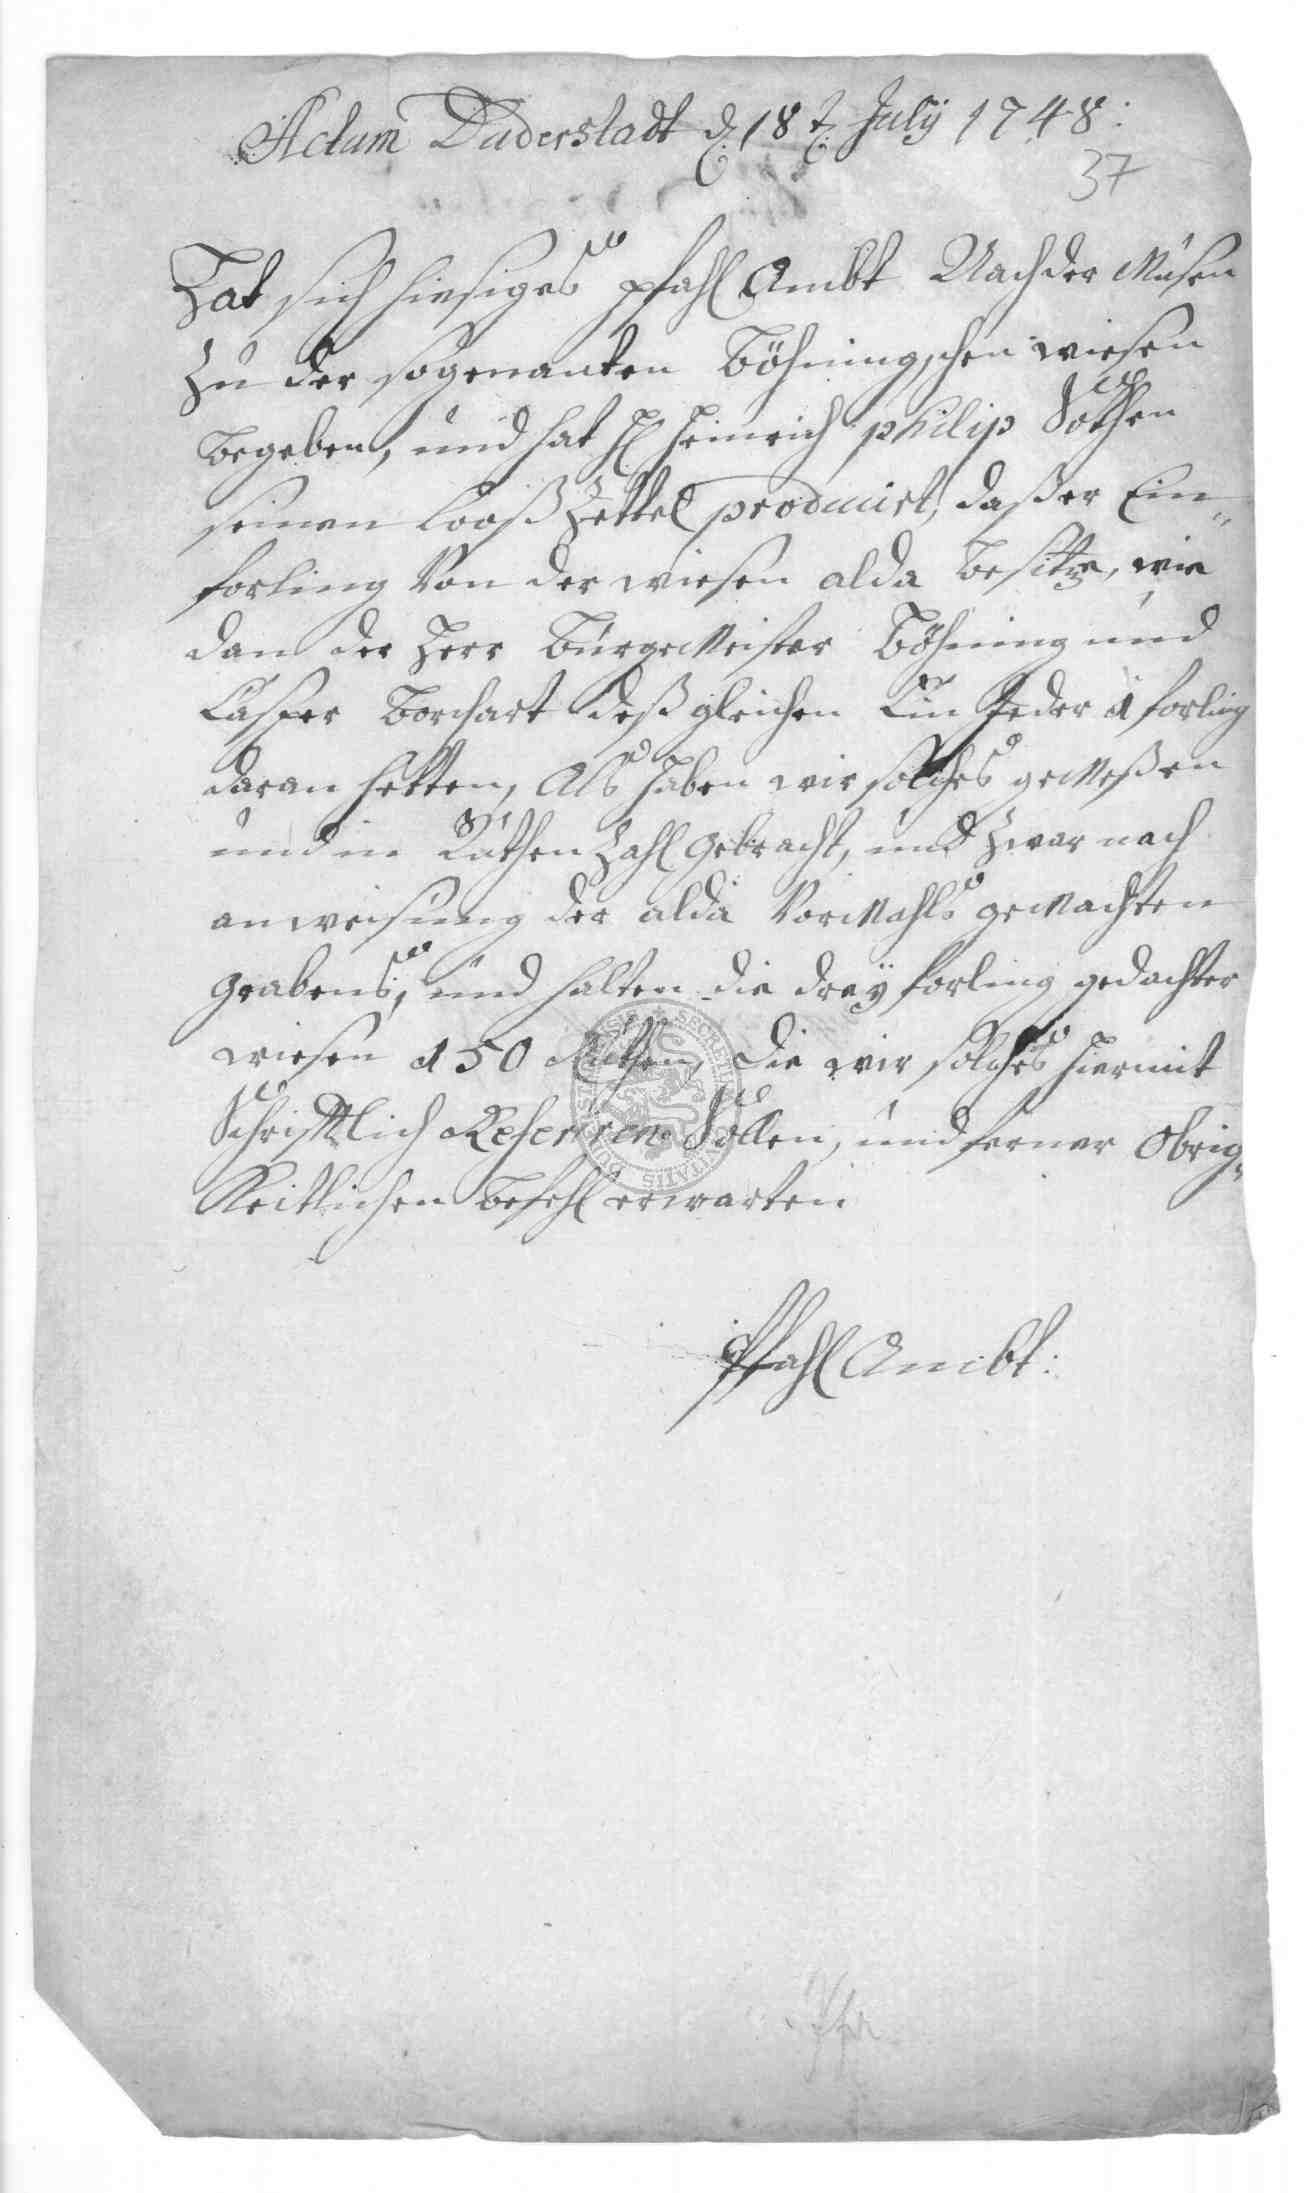 Actum Duderstadt d. 18 t. July 1748:
37
Hat sich hiesiges pfahl Ambt Nach der Musen
zu der sogenanten Böhningschen wiesen
begeben, und hat H. Heinrich philip Söthen
seinen Looß Zettel producirt, daß er Ein
forling Von der wiesen alda besitze, wie
dan der Herr BürgeMeister Böhning und
Casper Borchart deß gleichen Ein Jeder 1 forling
daran hetten, Als haben wir solches geMeßen
und in Ruthen Zahl gebracht, und zwar nach
anweisung der alda VorMahls geMachten
grabens, und halten die drey forling gedachter
wiesen 150 Ruthen, die wir solches hiermit
Schrifftlich Referiren Sollen, und ferner Obrig„
Keitlichen befehl erwarten
Pfahl Ambt: